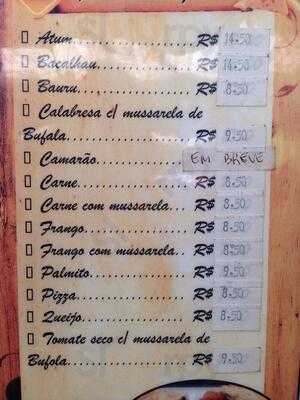 Atum..................... R$ 14.50
Bacalhau................ R$ 14.50
Bauru..................... R$ 8.50
Calabresa c/ mussarela de
Bufala..................... R$ 9.50
Camarão................ EM BREVE
Carne..................... R$ 8.50
Carne com mussarela... R$ 8.50
Frango.................... R$ 8.50
Frango com mussarela.. R$ 8.50
Palmito................... R$ 9.50
Pizza...................... R$ 8.50
Queijo.................... R$ 8.50
Tomate seco c/ mussarela de
Bufola..................... R$ 9.50